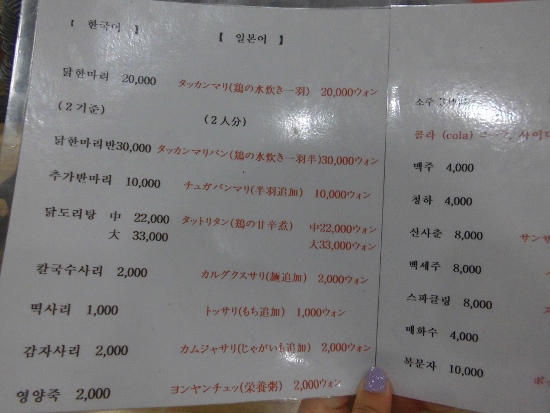 【 한국어 】 【 일본어 】
닭한마리 20,000 タッカンマリ(鶏の水炊き一羽) 20,000ウォン
(2기준) (2人分)
닭한마리반30,000 タッカンマリバン(鶏の水炊き一羽半)30,000ウォン
추가반마리 10,000 チュガバンマリ(半羽追加) 10,000ウォン
닭도리탕 中 22,000 タットリタン(鶏の甘辛煮) 中22,000ウォン
大 33,000 大33,000ウォン
칼국수사리 2,000 カルグクスサリ(麺追加) 2,000ウォン
떡사리 1,000 トッサリ(もち追加) 1,000ウォン
감자사리 2,000 カムジャサリ(じゃがいも追加) 2,000ウォン
영양죽 2,000 ヨンヤンチュッ(栄養粥) 2,000ウォン
소주
콜라 (cola) コーラ, 사이다
맥주 4,000
청하 4,000
산사춘 8,000 サンサ
백세주 8,000
스파클링 8,000
매화수 4,000
복분자 10,000 ボー